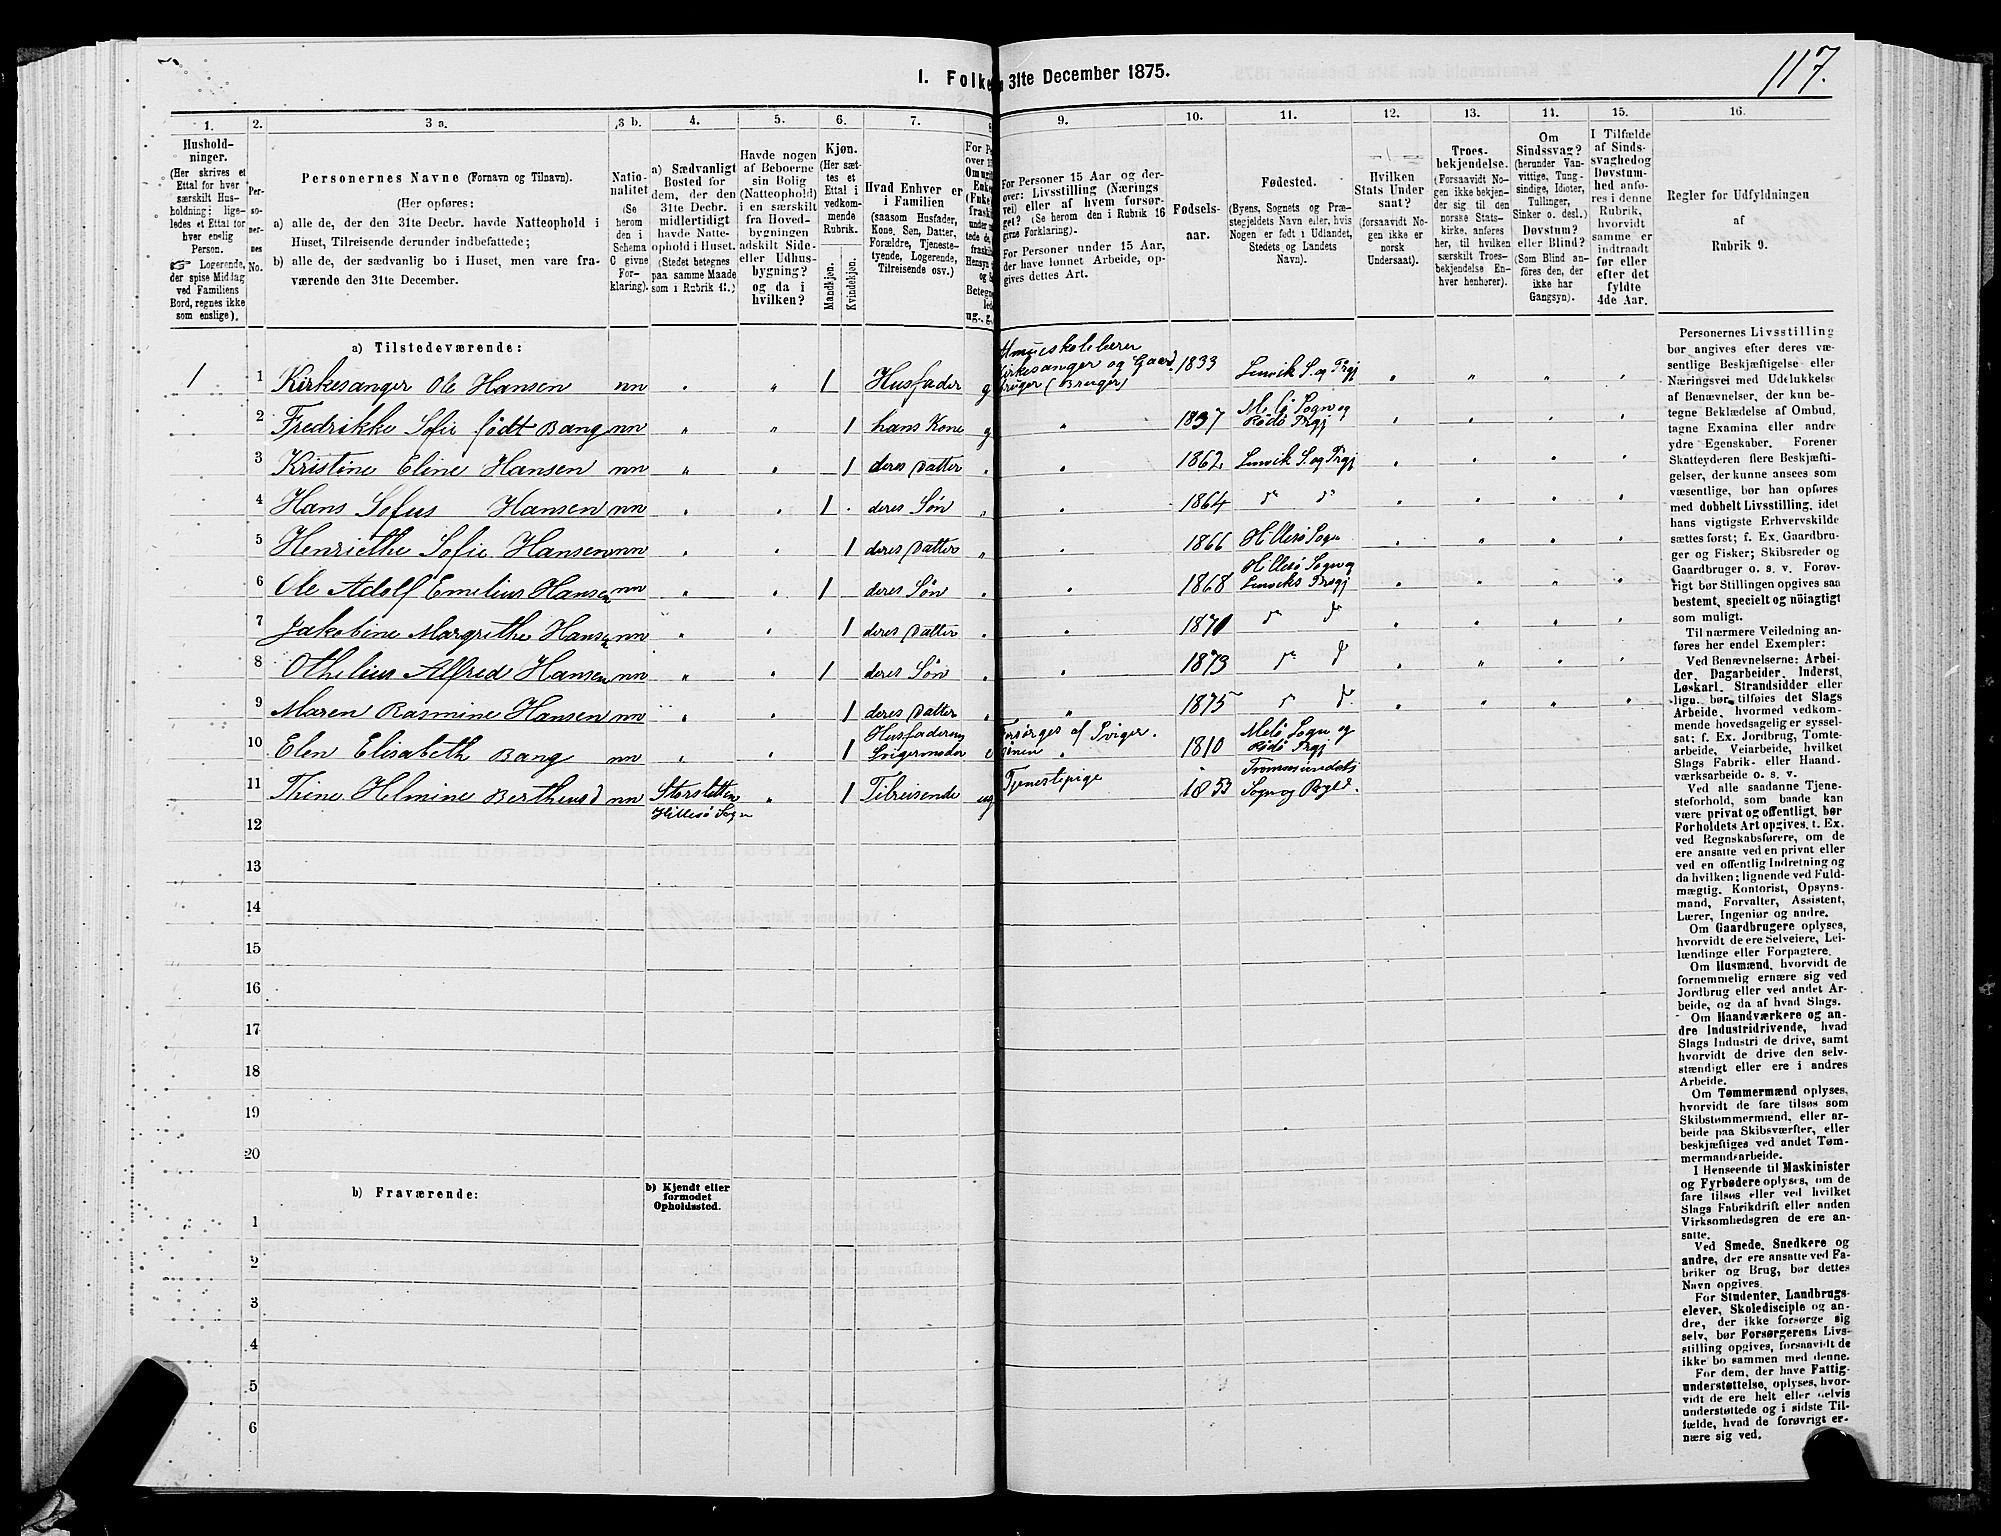 117.
1. Folke
n 31te December 1875.
1.
2.
3 a.
3 b.
4.
5.
6.
7.
8
9.
10.
11.
12.
13.
14.
15.
16.
Hushold-
ninger.
(Her skrives et
Ettal for hver
særskilt Hus-
holdning; lige-
ledes et Ettal for
hver enslig
Person.
☞ Logerende,
der spise Middag
ved Familiens
Bord, regnes ikke
som enslige).
Per-
so-
ner-
nes
No.
Personernes Navne (Fornavn og Tilnavn).
(Her opføres:
a) alle de, der den 31te Decbr. havde Natteophold i
Huset, Tilreisende derunder indbefattede;
b) alle de, der sædvanlig bo i Huset, men vare fra-
værende den 31te December.
Natio-
nalitet
(Se
herom
den i
Schema
C givne
For-
klaring).
a) Sædvanligt
Bosted for
dem, der den
31te Decbr.
midlertidigt
havde Natte-
ophold i Huset.
(Stedet betegnes
paa samme Maade
som i Rubrik 11.)
Havde nogen
af Beboerne
sin Bolig
(Natteophold)
i en særskilt
fra Hoved-
bygningen
adskilt Side-
eller Udhus-
bygning?
og da i
hvilken?
Kjøn.
(Her sæt-
tes et
Ettal i
vedkom-
mende
Rubrik.
Mandkjøn.
Kvindekjøn.
Hvad Enhver er
i Familien
(saasom Husfader,
Kone, Søn, Datter,
Forældre, Tjeneste-
tyende, Logerende,
Tilreisende osv.)
For Personer 15 Aar og der-
over: Livsstilling (Nærings
vei) eller af hvem forsør-
get? (Se herom den i Rubrik 16
givne Forklaring).
For Personer under 15 Aar,
der have lønnet Arbeide, op-
gives dettes Art.
Fødsels-
aar.
Fødested.
(Byens, Sognets og Præ-
stegjeldets Navn eller, hvis
Nogen er født i Udlandet,
Stedets og Landets
Navn).
Hvilken
Stats Under
saat?
(forsaavidt No-
gen ikke er
norsk
Undersaat).
Troes-
bekjendelse.
(Forsaavidt No-
gen ikke bekjen-
der sig til den
norske Stats-
kirke, anføres
her, til hvilken
særskilt Troes-
bekjendelse En-
hver henhører).
Om
Sindssvag?
(herunder Van-
vittige, Tung-
sindige, Idioter,
Tullinger,
Sinker o. desl.)
Døvstum?
eller Blind?
(Som Blind an-
føres den, der
ikke har
Gangsyn).
I Tilfælde
af Sinds-
svaghed og
Døvstum-
hed anfø-
res i denne
Rubrik,
hvorvidt
samme er
indtraadt
før eller
efter det
fyldte
4de Aar.
Regler for Udfyldningen
af
Rubrik 9.
a) Tilstedeværende:
1 1 Kirkesanger Ole Hansen nn „ „ 1 Husfader g Almueskolelærer Kirkesanger og Gaardbruger (Bruger) 1833 Lenvik S. og Prgj
2 Fredrikke Sofie født Bang nn „ „ 1 hans Kone g „ 1837 Melö Sogn og Rödö Prgj
3 Kristine Eline Hansen nn „ „ 1 deres Datter „ „ 1862 Lenvik S. og Prgj
4 Hans Sofus Hansen nn „ „ 1 deres Søn „ „ 1864 d° d°
5 Henriethe Sofie Hansen nn „ „ 1 deres Datter „ „ 1866 Hillesö Sogn
6 Ole Adolf Emilius Hansen nn „ „ 1 deres Søn „ „ 1868 Hillesö Sogn og Lenviks Prgj
7 Jakobine Margrethe Hansen nn „ „ 1 deres Datter „ „ 1871 d° d°
8 Othelius Alfred Hansen nn „ „ 1 deres Søn „ „ 1873 d° d°
9 Maren Rasmine Hansen nn „ „ 1 deres Datter „ „ 1875 d° d°
10 Elen Elisabeth Bang nn „ „ 1 Husfaderens Svigermoder e Forsørges af Svigersønen „ 1810 Melö Sogn og Rödö Prgj
11 Thine Helmine Bertheusd nn Storstetten Hillesö Sogn „ 1 Tilreisende ug Tjenestepige 1853 Tromsøsundets Sogn og Prgld.
12
13
14
15
16
17
18
19
20
b) Fraværende:
b) Kjendt eller
formodet
Opholdssted.
1
2
3
4
5
6
Personernes Livsstilling
bør angives efter deres væ-
sentlige Beskjæftigelse eller
Næringsvei med Udelukkelse
af Benævnelser, der kun be-
tegne Beklædelse af Ombud,
tagne Examina eller andre
ydre Egenskaber. Forener
Skatteyderen flere Beskjæfti-
gelser, der kunne ansees som
væsentlige, bør han opføres
med dobbelt Livsstilling, idet
hans vigtigste Erhvervskilde
sættes først; f. Ex. Gaardbru-
ger og Fisker; Skibsreder og
Gaardbruger o. s. v. Forøv-
rigt bør Stillingen opgives saa
bestemt, specielt og nöiagtigt
som muligt.
Til nærmere Veiledning an-
føres her endel Exempler:
Ved Benævnelserne: Arbei-
der, Dagarbeider, Inderst,
Løskarl, Strandsidder eller
lign. bør tilføies det Slags
Arbeide, hvormed vedkom-
mende hovedsagelig er syssel-
sat; f. Ex. Jordbrug, Tomte-
arbeide, Veiarbeide, hvilket
Slags Fabrik- eller Haand-
værksarbeide o. s. v.
Ved alle saadanne Tjene-
steforhold, som baade kan
være privat og offentligt, bør
Forholdets Art opgives, t. Ex.
ved Regnskabsførere, om de
ere ansatte ved en privat eller
ved en offentlig Indretning og
da hvilken; lignende ved Fuld-
mægtig, Kontorist, Opsyns-
mand, Forvalter, Assistent,
Lærer, Ingeniør og andre.
Om Gaardbrugere oplyses,
hvorvidt de ere Selveiere, Lei-
lændinge eller Forpagtere.
Om Husmænd, hvorvidt de
fornemmelig ernære sig ved
Jordbrug eller ved andet Ar-
beide, og da af hvad Slags.
Om Haandværkere og an-
dre Industridrivende, hvad
Slags Industri de drive, samt
hvorvidt de drive den selv-
stændigt eller ere i andres
Arbeide.
Om Tømmermænd oplyses,
hvorvidt de fare tilsøs som
Skibstømmermænd, eller ar-
beide paa Skibsværfter, eller
beskjæftiges ved andet Tøm-
mermandsarbeide.
I Henseende til Maskinister
og Fyrbødere oplyses, om de
fare tilsøs eller ved hvilket
Slags Fabrikdrift eller anden
Virksomhedsgren de ere an-
satte.
Ved Smede, Snedkere og
andre, der ere ansatte ved Fa-
briker og Brug, bør dettes
Navn opgives.
For Studenter, Landbrugs-
elever, Skoledisciple og an-
dre, der ikke forsørge sig
selv, bør Forsørgerens Livs-
stilling opgives, forsaavidt de
ikke bo sammen med denne.
For dem, der have Fattig-
understøttelse, oplyses, hvor-
vidt de ere helt eller delvis
understøttede og i sidste Til-
fælde, hvad de forøvrigt er-
nære sig ved.